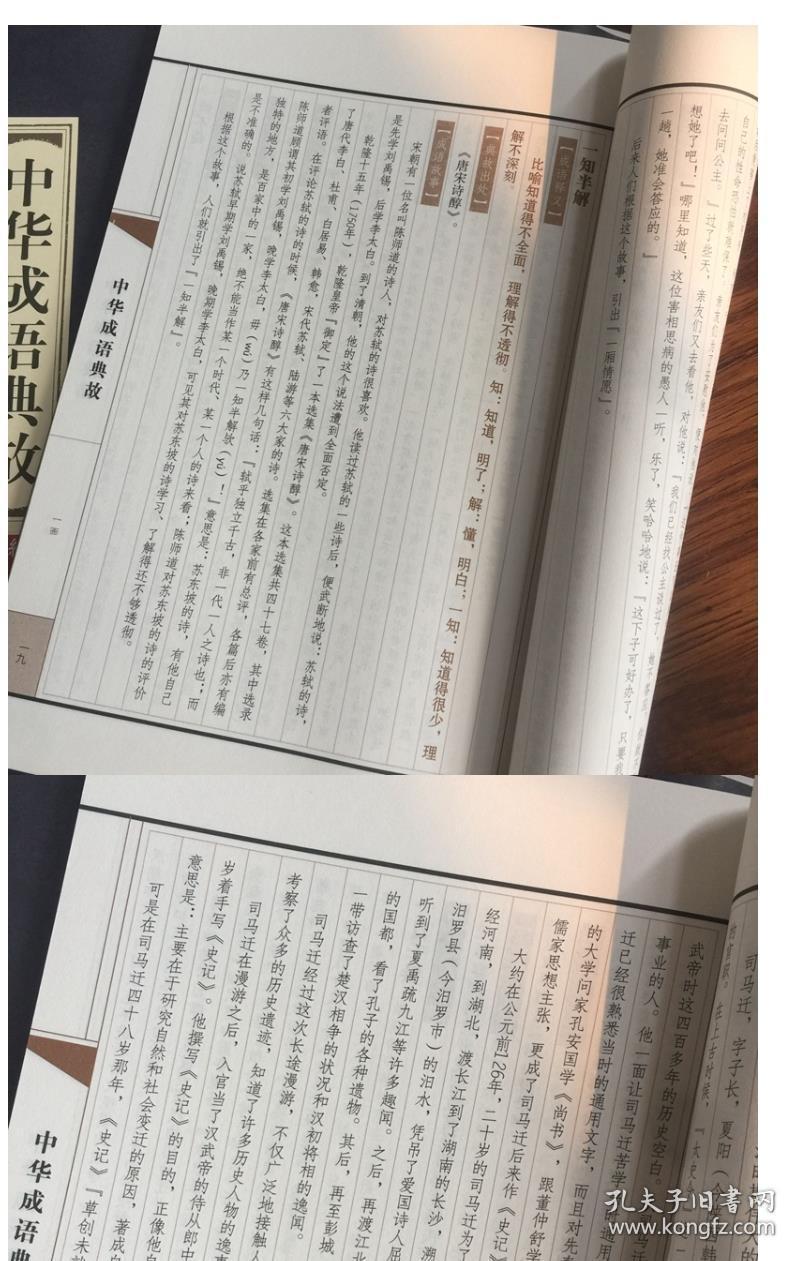 中华成语典故
去问问公主。』过了些天，亲友们又去看他，对他说：『我们已经找公主谈过了，
想她了吧！』哪里知道，这位害相思病的愚人一听，乐了，笑哈哈地说：『这下子可好办了，只要我
一趟，她准会答应的。』
后来人们根据这个故事，引出『一厢情愿』。
一知半解
【成语释义】
比喻知道得不全面，理解得不透彻。知：知道，明了；解：懂，明白；一知：知道得很少，理
解不深刻。
【典故出处】
《唐宋诗醇》。
【成语故事】
宋朝有一位名叫陈师道的诗人，对苏轼的诗很喜欢。他读过苏轼的一些诗后，便武断地说：苏轼的诗，
是先学刘禹锡，后学李太白。到了清朝，他的这个说法遭到全面否定。
乾隆十五年（1750年），乾隆皇帝『御定』了一本选集《唐宋诗醇》。这本选集共四十七卷，其中选录
了唐代李白、杜甫、白居易、韩愈，宋代苏轼、陆游等六大家的诗。选集在各家前有总评，各篇后亦有编
者评语。在评论苏轼的诗的时候，《唐宋诗醇》有这样几句话：『轼乎独立千古，非一代一人之诗也；而
陈师道顾谓其初学刘禹锡，晚学李太白，毋（wú）乃一知半解欤（yú）！』意思是：苏东坡的诗，有他自己
独特的地方，是百家中的一家，绝不能当作某一个时代、某一个人的诗来看；陈师道对苏东坡的诗的评价
是不准确的。说苏轼早期学刘禹锡，晚期学李太白，可见其对苏东坡的诗学习、了解得还不够透彻。
根据这个故事，人们就引出了『一知半解』。
中华成语典故
一画
一九
司马迁，字子长，夏阳（今
在上古时候，『太史
武帝时这四百多年的历史空白。
事业的人。他一面让司马迁苦学
迁已经很熟悉当时的通用文字，而且对先
的大学问家孔安国学《尚书》，跟董仲舒学
儒家思想主张，更成了司马迁后来作《史记》
大约在公元前126年，二十岁的司马迁为了
经河南，到湖北，渡长江到了湖南的长沙，溯
汨罗县（今汨罗市）的汨水，凭吊了爱国诗人屈
听到了夏禹疏九江等许多趣闻。之后，再渡江北
的国都，看了孔子的各种遗物。其后，再至彭城
一带访查了楚汉相争的状况和汉初将相的逸闻。
司马迁经过这次长途漫游，不仅广泛地接触人
考察了众多的历史遗迹，知道了许多历史人物的逸事
司马迁在漫游之后，入官当了汉武帝的侍从郎中
岁着手写《史记》。他撰写《史记》的目的，正像他自
意思是：主要在于研究自然和社会变迁的原因，著成自
可是在司马迁四十八岁那年，《史记》『草创未
中华成语典
孔夫子旧书网
www.kongfz.com